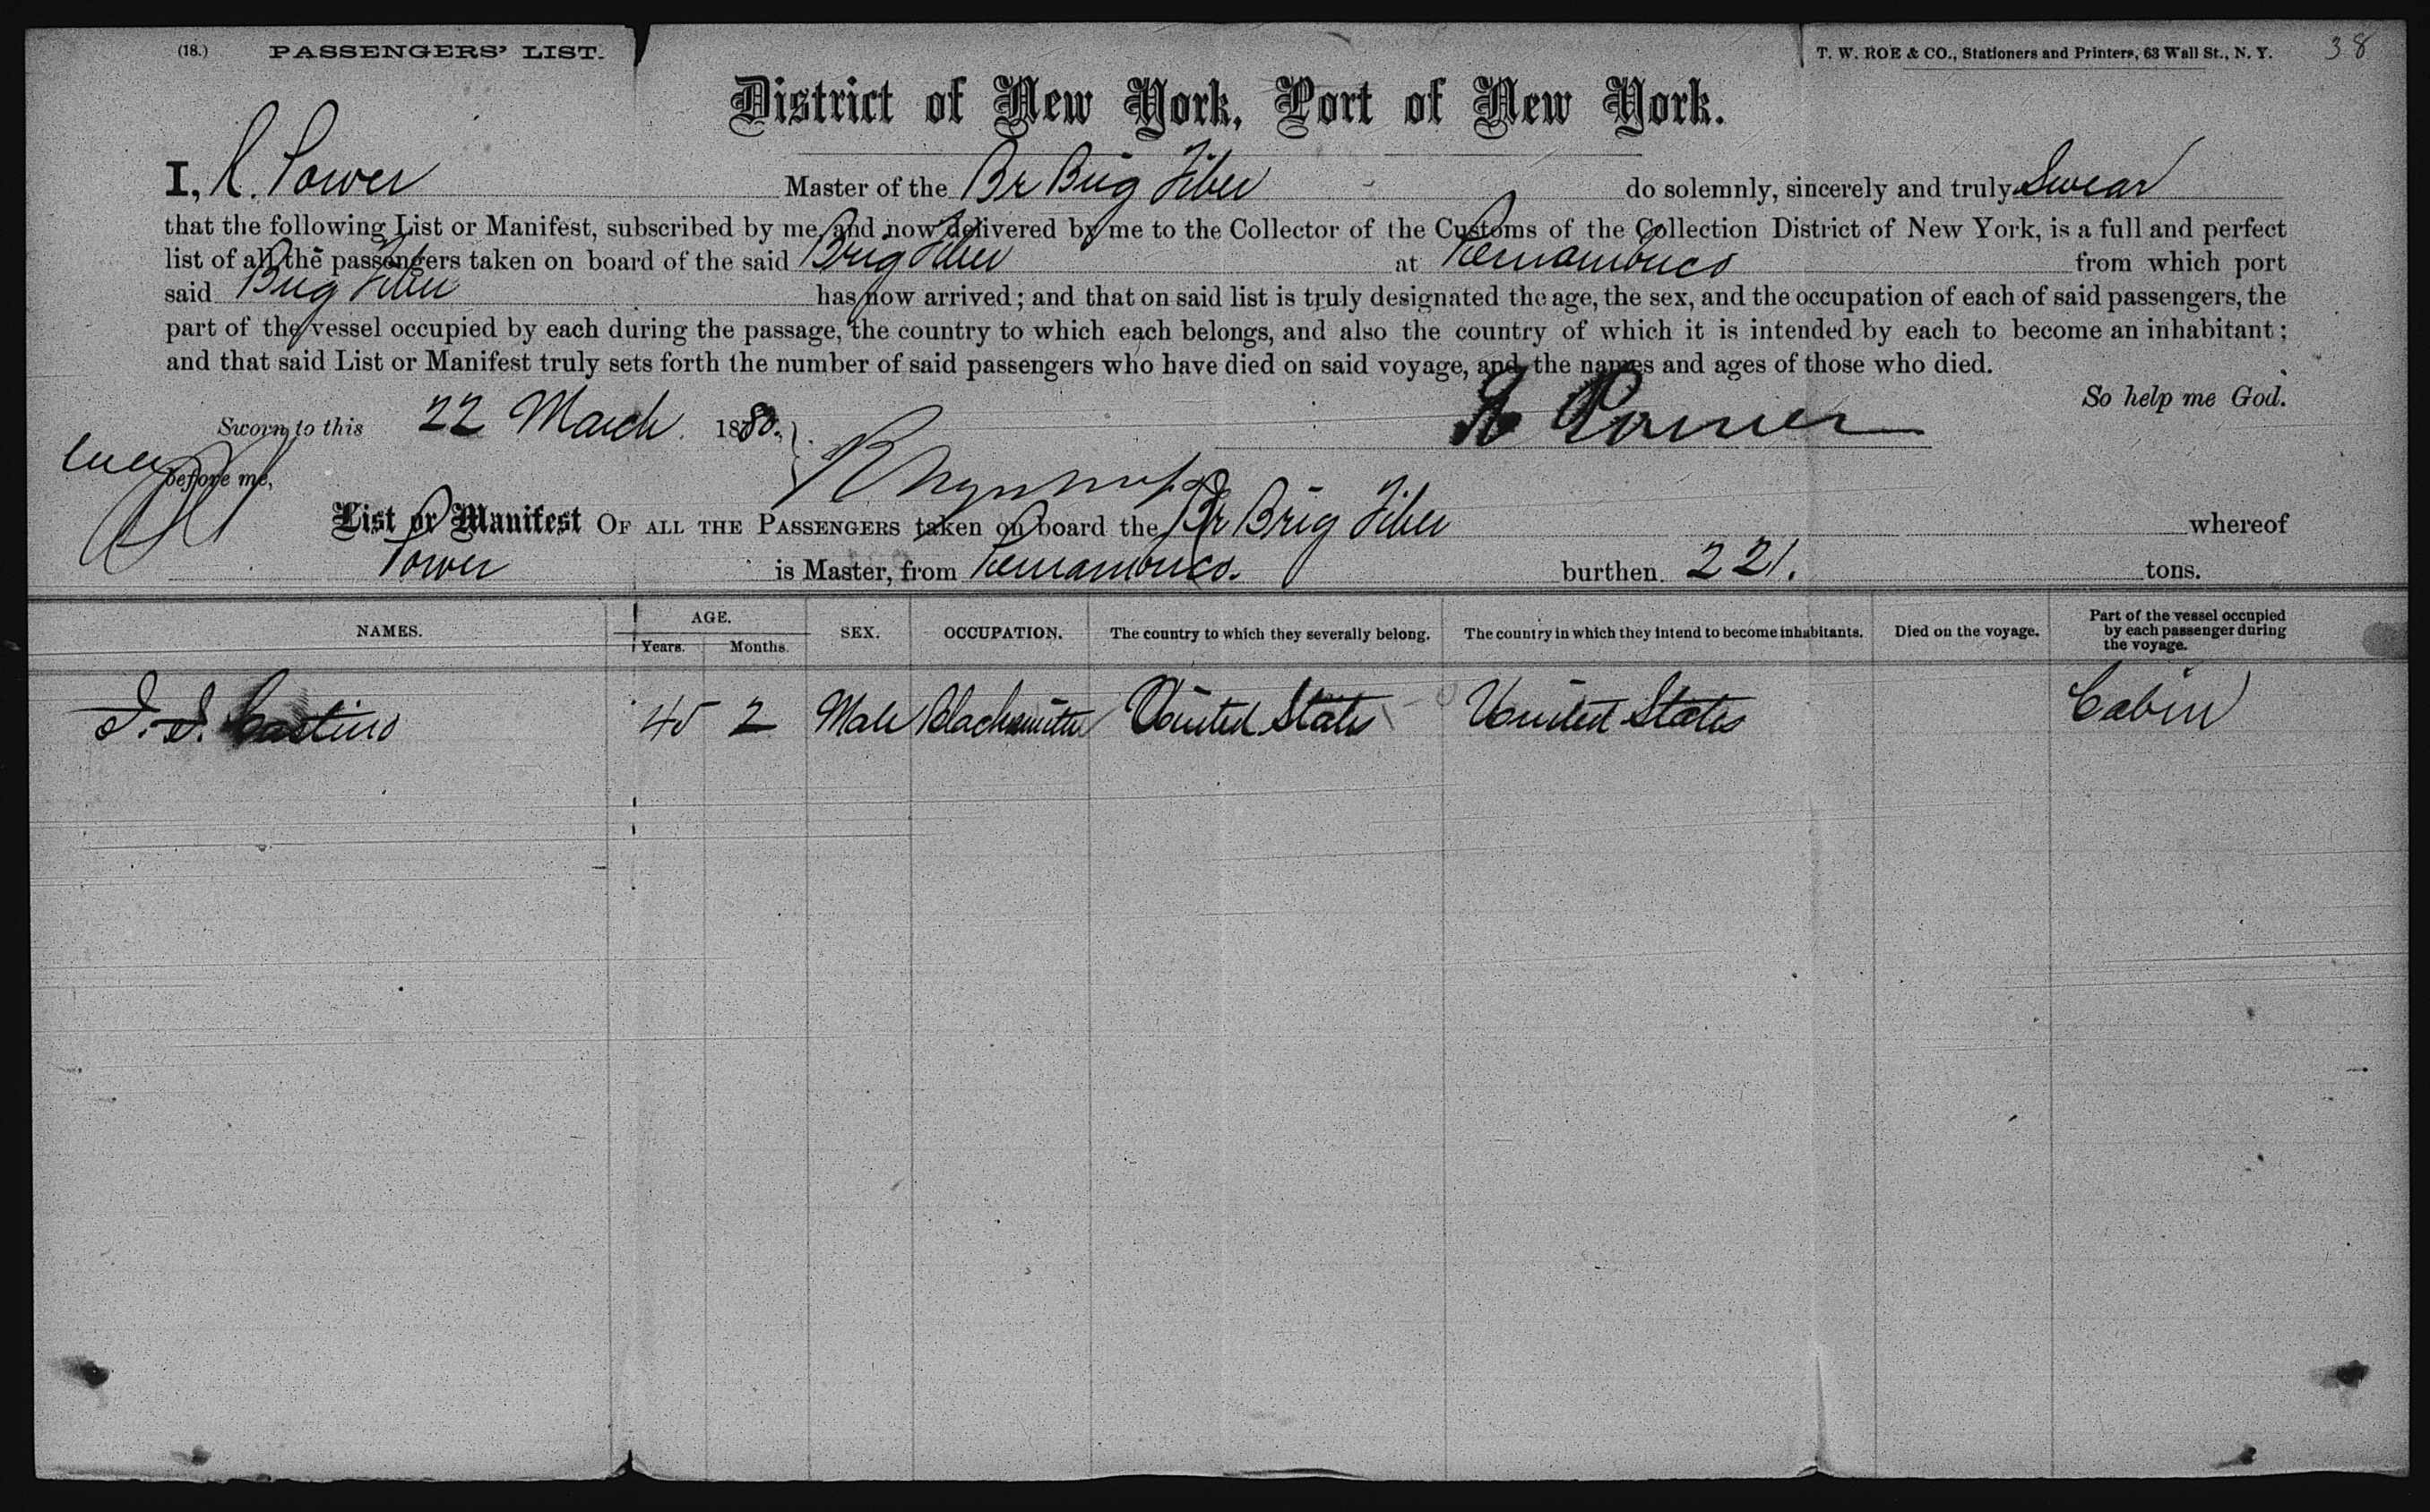 (18.) PASSENGERS' LIST. T. W. ROE & CO., Stationers and Printers, 63 Wall St., N. Y. 38
District of New York, Port of New York.
I, Power Master of the Br Brig Tiber do solemnly, sincerely and truly Swear
that the following List or Manifest, subscribed by me, and now delivered by me to the Collector of the Customs of the Collection District of New York, is a full and perfect
list of all the passengers taken on board of the said Brig Tiber at Pernambuco from which port
said Brig Tiber has now arrived; and that on said list is truly designated the age, the sex, and the occupation of each of said passengers, the
part of the vessel occupied by each during the passage, the country to which each belongs, and also the country of which it is intended by each to become an inhabitant;
and that said List or Manifest truly sets forth the number of said passengers who have died on said voyage, and the names and ages of those who died.
So help me God.
Sworn to this 22 March 1880. Power
before me,
List or Manifest OF ALL THE PASSENGERS taken on board the Br Brig Tiber whereof
Power is Master, from Pernambuco. burthen 221. tons.
NAMES. AGE. Years. Months. SEX. OCCUPATION. The country to which they severally belong. The country in which they intend to become inhabitants. Died on the voyage. Part of the vessel occupied by each passenger during the voyage.
2 Male Blacksmith United States United States Cabin